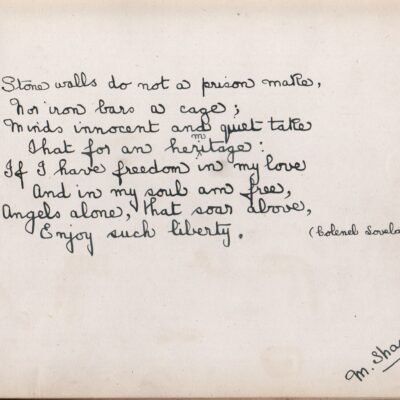 Stone walls do not a prison make,
Nor iron bars a cage;
Minds innocent and quiet take
That for an heritage:
If I have freedom in my love
And in my soul am free,
Angels alone, that soar above,
Enjoy such liberty.
(Colonel
M.